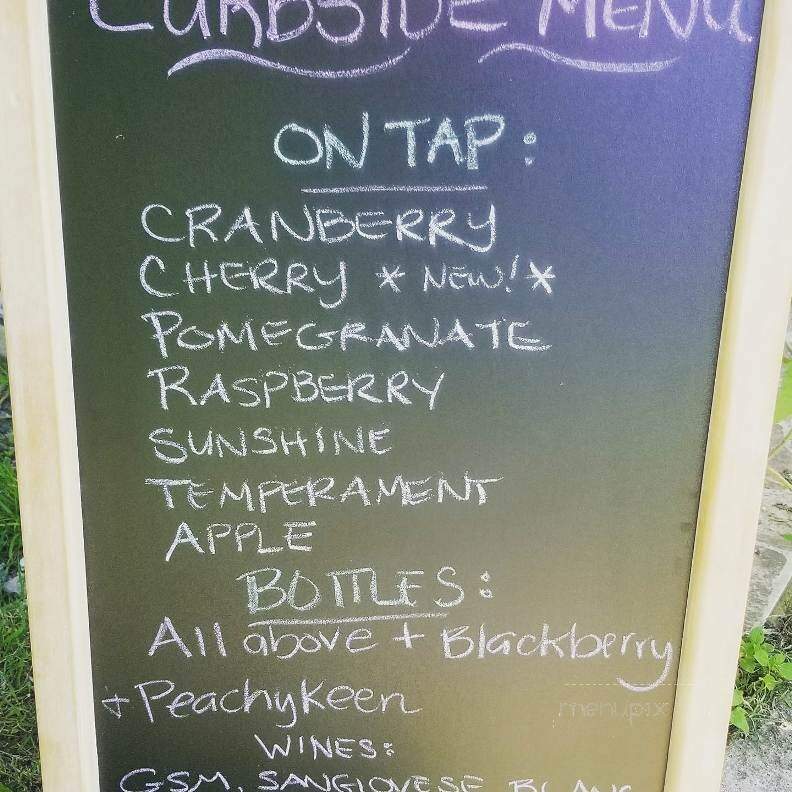 CURBSIDE MENU
ON TAP:
CRANBERRY
CHERRY *NEW!*
POMEGRANATE
RASPBERRY
SUNSHINE
TEMPERAMENT
APPLE
BOTTLES:
All above + Blackberry
+ Peachykeen
menupix
WINES:
GSM, SANGIOVESE, BLANC